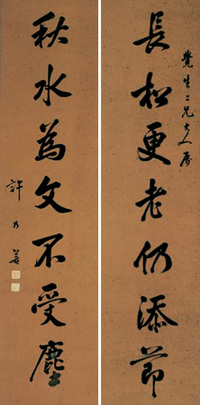 覺生二兄大人屬
長松更老仍添節
秋水為文不受塵
許乃普